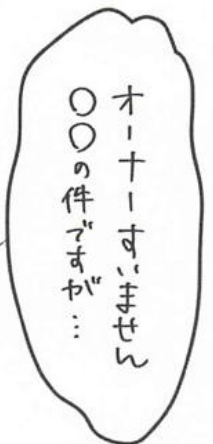 オーナーすいません
○○の件ですが…